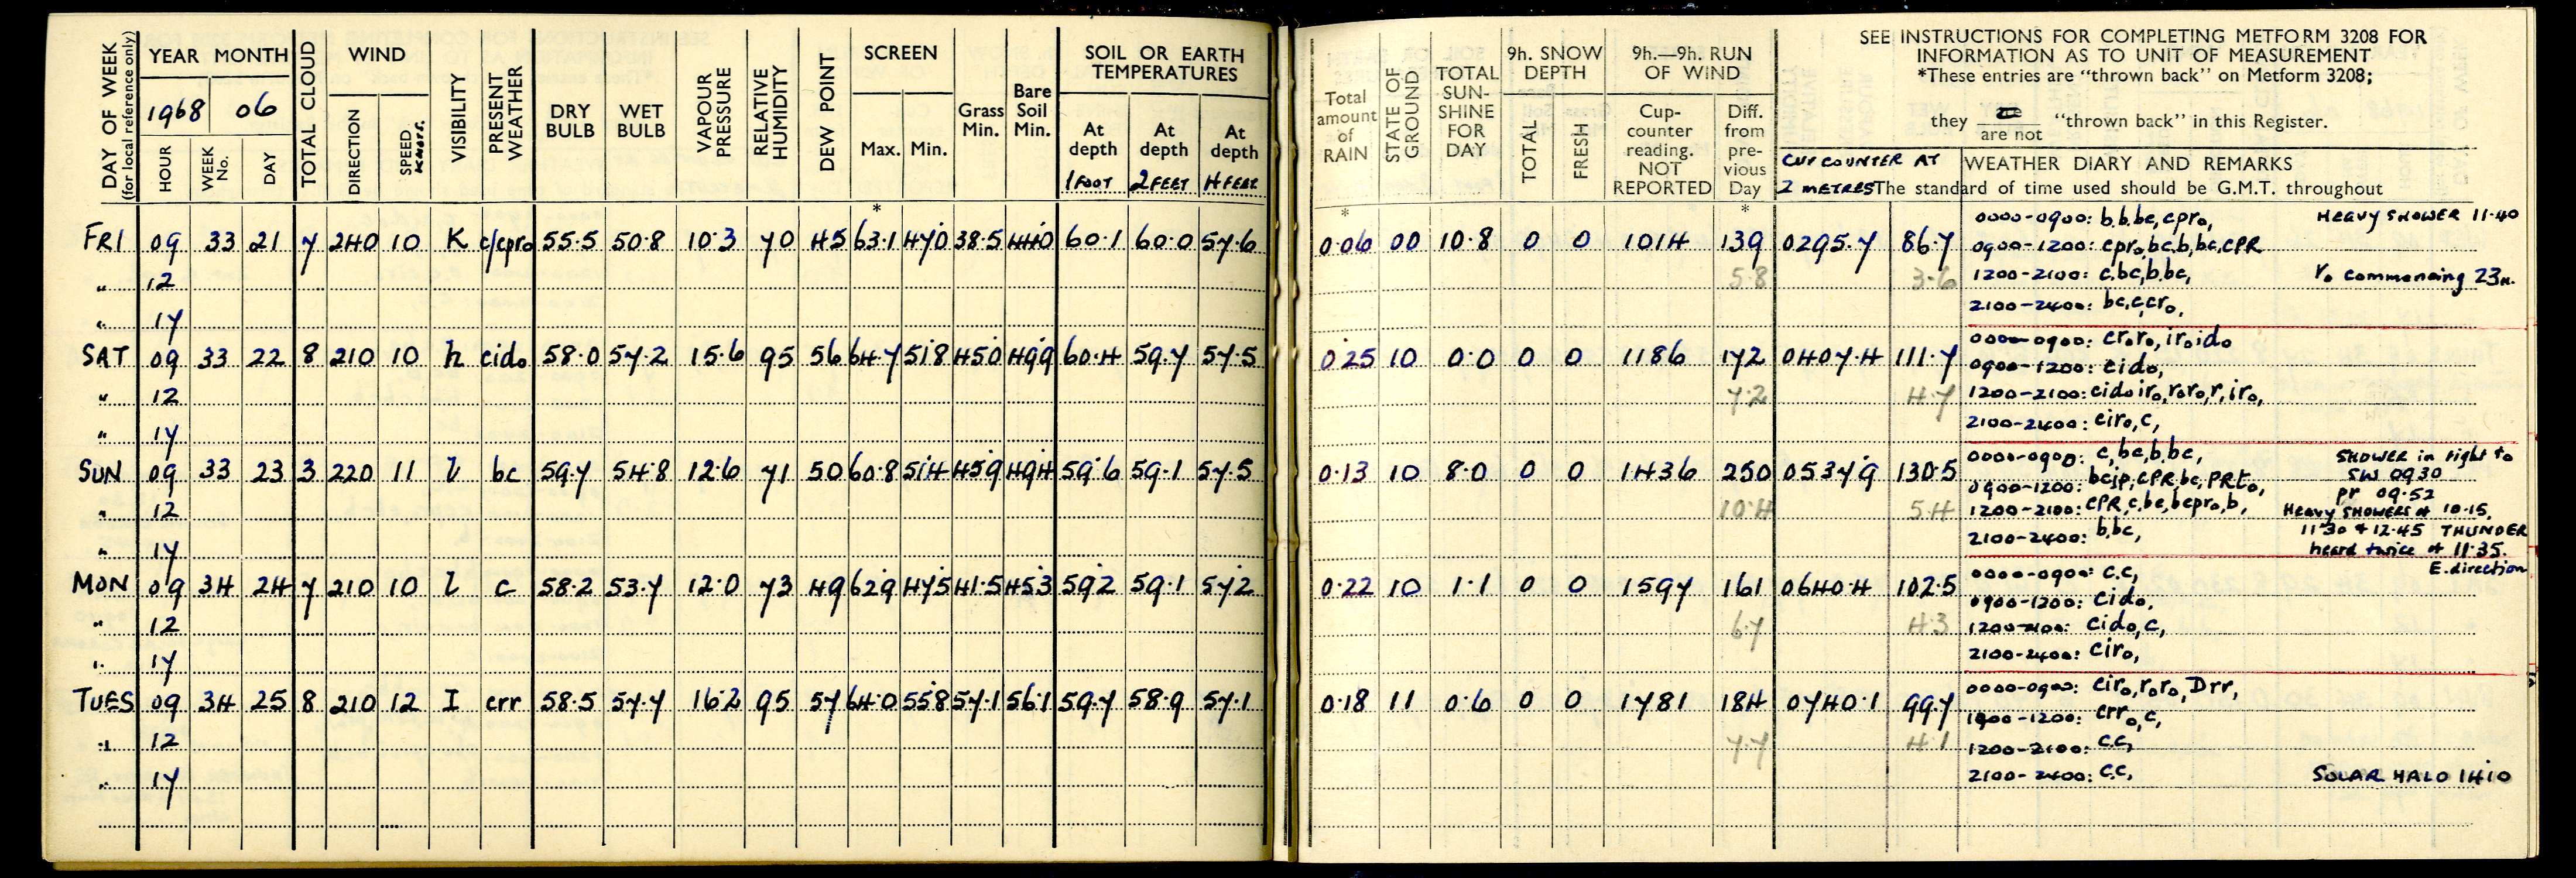 DAY OF WEEK (for local reference only)
YEAR MONTH
1968 06
HOUR WEEK No. DAY
TOTAL CLOUD
WIND
DIRECTION SPEED KNOTS.
VISIBILITY
PRESENT WEATHER
DRY BULB
WET BULB
VAPOUR PRESSURE
RELATIVE HUMIDITY
DEW POINT
SCREEN
Max. Min.
*
Grass Min.
Bare Soil Min.
SOIL OR EARTH TEMPERATURES
At depth 1 FOOT
At depth 2 FEET
At depth 4 FEET
Total amount of RAIN
*
STATE OF GROUND
TOTAL SUN-SHINE FOR DAY
9h. SNOW DEPTH
TOTAL FRESH
9h.—9h. RUN OF WIND
Cup-counter reading. NOT REPORTED
Diff. from pre-vious Day
*
SEE INSTRUCTIONS FOR COMPLETING METFORM 3208 FOR
INFORMATION AS TO UNIT OF MEASUREMENT
*These entries are "thrown back" on Metform 3208;
they are not "thrown back" in this Register.
CUP COUNTER AT 2 METRES
WEATHER DIARY AND REMARKS
The standard of time used should be G.M.T. throughout
FRI 09 33 21 7 240 10 K c/cpro 55.5 50.8 10.3 70 45 63.1 47.0 38.5 44.0 60.1 60.0 57.6 0.06 00 10.8 0 0 1014 139 0295.7 86.7
0000-0900: b.b.bc,cpro, HEAVY SHOWER 11.40
0900-1200: cpro,bc,b,bc,CPR
" 12 5.8 3.6 1200-2100: c.bc,b.bc, ro commencing 23h.
" 17 2100-2400: bc,c,cro,
SAT 09 33 22 8 210 10 h cido 58.0 57.2 15.6 95 56 64.7 51.8 45.0 49.9 60.4 59.7 57.5 0.25 10 0.0 0 0 1186 172 0407.4 111.7
0000-0900: cro,ro, iro,ido
0900-1200: cido,
" 12 7.2 4.7 1200-2100: cido iro,roro,r,iro,
" 17 2100-2400: ciro,c,
SUN 09 33 23 3 220 11 l bc 59.7 54.8 12.6 71 50 60.8 51.4 45.9 49.4 59.6 59.1 57.5 0.13 10 8.0 0 0 1436 250 0537.9 130.5
0000-0900: c,bc,b.bc, SHOWER in sight to
SW 0930
0900-1200: bcjp,CPR,bc,PRto, pr 09.52
" 12 10.4 5.4 1200-2100: CPR,c.bc,bcpro,b, HEAVY SHOWERS at 10.15,
11.30 & 12.45 THUNDER
" 17 2100-2400: b.bc, heard twice at 11.35.
E. direction
MON 09 34 24 7 210 10 l c 58.2 53.7 12.0 73 49 62.9 47.5 41.5 45.3 59.2 59.1 57.2 0.22 10 1.1 0 0 1597 161 0640.4 102.5
0000-0900: c.c,
0900-1200: cido,
" 12 6.7 4.3 1200-2100: cido,c,
" 17 2100-2400: ciro,
TUES 09 34 25 8 210 12 I crr 58.5 57.7 16.2 95 57 64.0 55.8 57.1 56.1 59.7 58.9 57.1 0.18 11 0.6 0 0 1781 184 0740.1 99.7
0000-0900: ciro,roro,Drr,
0900-1200: crro,c,
" 12 7.7 4.1 1200-2100: c.c,
" 17 2100-2400: c.c, SOLAR HALO 1410